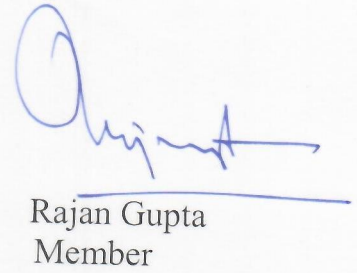 Rajan Gupta
Member